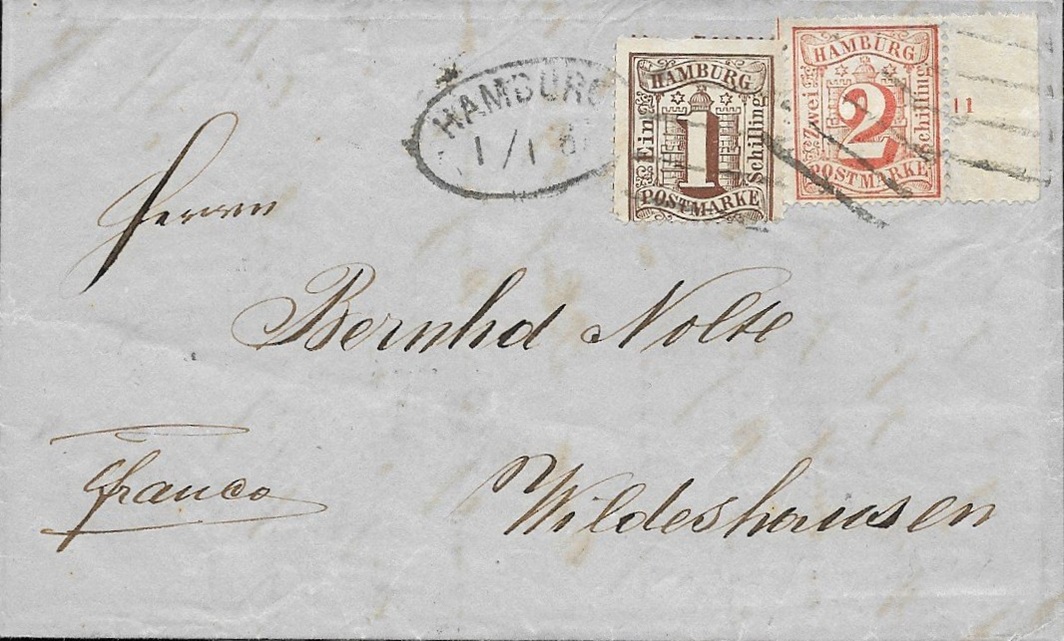 HAMBURG
1/1 6
HAMBURG
Ein
1
Schilling
POSTMARKE
HAMBURG
Zwei
2
Schilling
POSTMARKE
11
Herrn
Bernhd Nolte
Franco
Wildeshausen